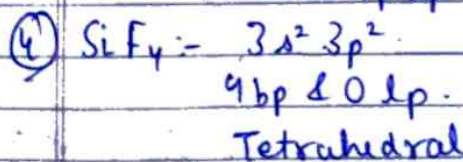 4) SiF₄ :- 3s² 3p².
4bp & 0 lp.
Tetrahedral